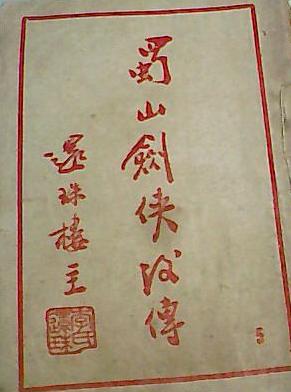 蜀山劍俠後傳
還珠樓主
5